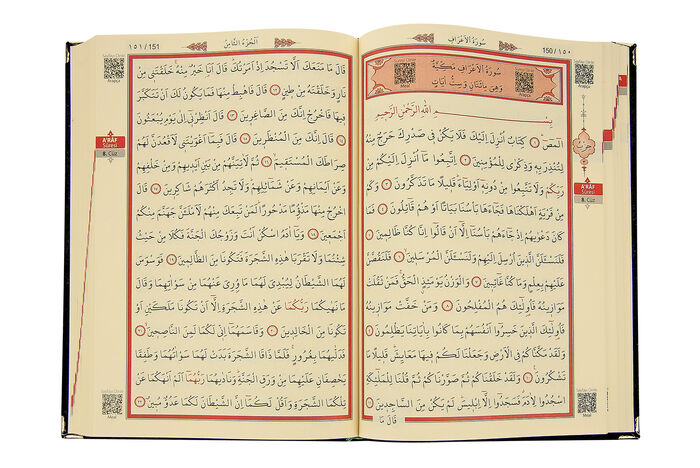 سُورَةُ الْأَعْرَافِ
150 / ١٥٠
سُورَةُ الْأَعْرَافِ مَكِّيَّةٌ
وَهِيَ مِائَتَانِ وَسِتُّ آيَاتٍ
Meal
Arapça
بِسْمِ اللّٰهِ الرَّحْمٰنِ الرَّحِيمِ
الٓمٓصٓ ۝١ كِتَابٌ اُنْزِلَ اِلَيْكَ فَلَا يَكُنْ فِي صَدْرِكَ حَرَجٌ مِنْهُ
لِتُنْذِرَ بِهِ وَذِكْرٰى لِلْمُؤْمِنِينَ ۝٢ اِتَّبِعُوا مَا اُنْزِلَ اِلَيْكُمْ مِنْ
رَبِّكُمْ وَلَا تَتَّبِعُوا مِنْ دُونِهِ اَوْلِيَاءَ قَلِيلًا مَا تَذَكَّرُونَ ۝٣ وَكَمْ
مِنْ قَرْيَةٍ اَهْلَكْنَاهَا فَجَاءَهَا بَأْسُنَا بَيَاتًا اَوْ هُمْ قَائِلُونَ ۝٤ فَمَا
كَانَ دَعْوٰيهُمْ اِذْ جَاءَهُمْ بَأْسُنَا اِلَّا اَنْ قَالُوا اِنَّا كُنَّا ظَالِمِينَ ۝٥
فَلَنَسْـَٔلَنَّ الَّذِينَ اُرْسِلَ اِلَيْهِمْ وَلَنَسْـَٔلَنَّ الْمُرْسَلِينَ ۝٦ فَلَنَقُصَّنَّ
عَلَيْهِمْ بِعِلْمٍ وَمَا كُنَّا غَائِبِينَ ۝٧ وَالْوَزْنُ يَوْمَئِذٍ الْحَقُّ فَمَنْ ثَقُلَتْ
مَوَازِينُهُ فَاُولٰئِكَ هُمُ الْمُفْلِحُونَ ۝٨ وَمَنْ خَفَّتْ مَوَازِينُهُ
فَاُولٰئِكَ الَّذِينَ خَسِرُوا اَنْفُسَهُمْ بِمَا كَانُوا بِاٰيَاتِنَا يَظْلِمُونَ ۝٩
وَلَقَدْ مَكَّنَّاكُمْ فِي الْاَرْضِ وَجَعَلْنَا لَكُمْ فِيهَا مَعَايِشَ قَلِيلًا مَا
تَشْكُرُونَ ۝١٠ وَلَقَدْ خَلَقْنَاكُمْ ثُمَّ صَوَّرْنَاكُمْ ثُمَّ قُلْنَا لِلْمَلٰئِكَةِ
اسْجُدُوا لِاٰدَمَ فَسَجَدُوا اِلَّا اِبْلِيسَ لَمْ يَكُنْ مِنَ السَّاجِدِينَ ۝١١
قَالَ مَا
حزب
A'RÂF
Sûresi
8. Cüz
Arapça
Meal
١٥١ / 151
اَلْجُزْءُ الثَّامِنُ
قَالَ مَا مَنَعَكَ اَلَّا تَسْجُدَ اِذْ اَمَرْتُكَ قَالَ اَنَا خَيْرٌ مِنْهُ خَلَقْتَنِي مِنْ
نَارٍ وَخَلَقْتَهُ مِنْ طِينٍ ۝١٢ قَالَ فَاهْبِطْ مِنْهَا فَمَا يَكُونُ لَكَ اَنْ تَتَكَبَّرَ
فِيهَا فَاخْرُجْ اِنَّكَ مِنَ الصَّاغِرِينَ ۝١٣ قَالَ اَنْظِرْنِي اِلٰى يَوْمِ يُبْعَثُونَ
۝١٤ قَالَ اِنَّكَ مِنَ الْمُنْظَرِينَ ۝١٥ قَالَ فَبِمَا اَغْوَيْتَنِي لَاَقْعُدَنَّ لَهُمْ
صِرَاطَكَ الْمُسْتَقِيمَ ۝١٦ ثُمَّ لَاٰتِيَنَّهُمْ مِنْ بَيْنِ اَيْدِيهِمْ وَمِنْ خَلْفِهِمْ
وَعَنْ اَيْمَانِهِمْ وَعَنْ شَمَائِلِهِمْ وَلَا تَجِدُ اَكْثَرَهُمْ شَاكِرِينَ ۝١٧ قَالَ
اخْرُجْ مِنْهَا مَذْؤُمًا مَدْحُورًا لَمَنْ تَبِعَكَ مِنْهُمْ لَاَمْلَـَٔنَّ جَهَنَّمَ مِنْكُمْ
اَجْمَعِينَ ۝١٨ وَيَا اٰدَمُ اسْكُنْ اَنْتَ وَزَوْجُكَ الْجَنَّةَ فَكُلَا مِنْ حَيْثُ
شِئْتُمَا وَلَا تَقْرَبَا هٰذِهِ الشَّجَرَةَ فَتَكُونَا مِنَ الظَّالِمِينَ ۝١٩ فَوَسْوَسَ
لَهُمَا الشَّيْطَانُ لِيُبْدِيَ لَهُمَا مَا وُرِيَ عَنْهُمَا مِنْ سَوْاٰتِهِمَا وَقَالَ
مَا نَهٰيكُمَا رَبُّكُمَا عَنْ هٰذِهِ الشَّجَرَةِ اِلَّا اَنْ تَكُونَا مَلَكَيْنِ اَوْ
تَكُونَا مِنَ الْخَالِدِينَ ۝٢٠ وَقَاسَمَهُمَا اِنِّي لَكُمَا لَمِنَ النَّاصِحِينَ ۝٢١
فَدَلّٰيهُمَا بِغُرُورٍ فَلَمَّا ذَاقَا الشَّجَرَةَ بَدَتْ لَهُمَا سَوْاٰتُهُمَا وَطَفِقَا
يَخْصِفَانِ عَلَيْهِمَا مِنْ وَرَقِ الْجَنَّةِ وَنَادٰيهُمَا رَبُّهُمَا اَلَمْ اَنْهَكُمَا عَنْ
تِلْكُمَا الشَّجَرَةِ وَاَقُلْ لَكُمَا اِنَّ الشَّيْطَانَ لَكُمَا عَدُوٌّ مُبِينٌ ۝٢٢
Arapça
A'RÂF
Sûresi
8. Cüz
Meal